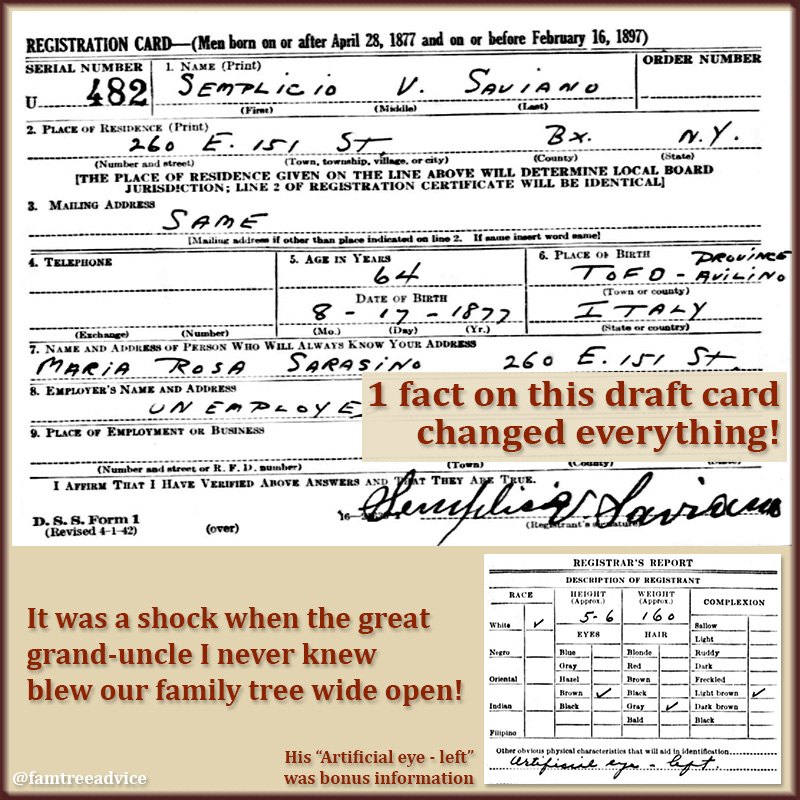 REGISTRATION CARD—(Men born on or after April 28, 1877 and on or before February 16, 1897)
SERIAL NUMBER 1. NAME (Print) ORDER NUMBER
U 482 SEMPLICIO V. SAVIANO
(First) (Middle) (Last)
2. PLACE OF RESIDENCE (Print)
260 E. 151 ST. BX. N.Y.
(Number and street) (Town, township, village, or city) (County) (State)
[THE PLACE OF RESIDENCE GIVEN ON THE LINE ABOVE WILL DETERMINE LOCAL BOARD
JURISDICTION; LINE 2 OF REGISTRATION CERTIFICATE WILL BE IDENTICAL]
3. MAILING ADDRESS
SAME
[Mailing address if other than place indicated on line 2. If same insert word same]
4. TELEPHONE 5. AGE IN YEARS 6. PLACE OF BIRTH PROVINCE
64 TOFO - AVILINO
(Town or county)
DATE OF BIRTH
8 - 17 - 1877 ITALY
(Exchange) (Number) (Mo.) (Day) (Yr.) (State or country)
7. NAME AND ADDRESS OF PERSON WHO WILL ALWAYS KNOW YOUR ADDRESS
MARIA ROSA SARASINO 260 E. 151 ST.
8. EMPLOYER'S NAME AND ADDRESS
UNEMPLOYE
1 fact on this draft card
changed everything!
9. PLACE OF EMPLOYMENT OR BUSINESS
(Number and street or R. F. D. number) (Town) (County)
I AFFIRM THAT I HAVE VERIFIED ABOVE ANSWERS AND THAT THEY ARE TRUE.
Semplicio V. Saviano
D. S. S. Form 1
(Revised 4-1-42) (over) 16— (Registrant's signature)
It was a shock when the great
grand-uncle I never knew
blew our family tree wide open!
His “Artificial eye - left”
was bonus information
@famtreeadvice
REGISTRAR'S REPORT
DESCRIPTION OF REGISTRANT
RACE HEIGHT (Approx.) WEIGHT (Approx.) COMPLEXION
White ✓ 5-6 160 Sallow
Light
EYES HAIR
Negro Blue Blonde Ruddy
Gray Red Dark
Oriental Hazel Brown Freckled
Brown ✓ Black Light brown ✓
Indian Black Gray ✓ Dark brown
Bald Black
Filipino
Other obvious physical characteristics that will aid in identification
Artificial eye - left.